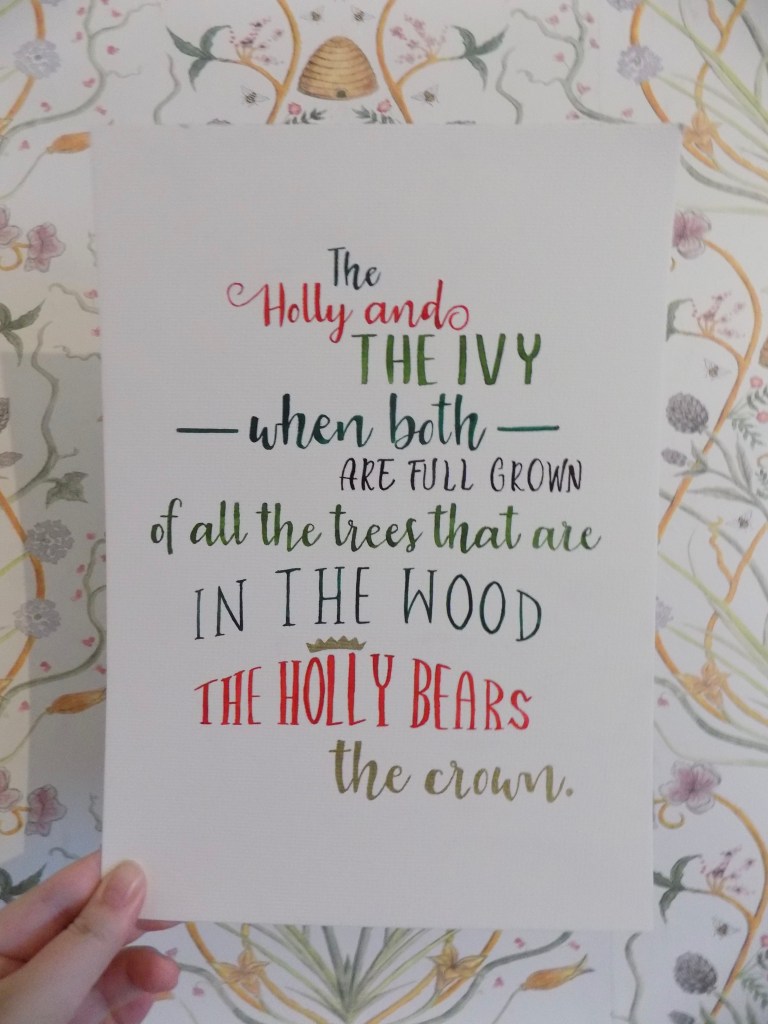 The
Holly and
THE IVY
— when both —
ARE FULL GROWN
of all the trees that are
IN THE WOOD
THE HOLLY BEARS
the crown.